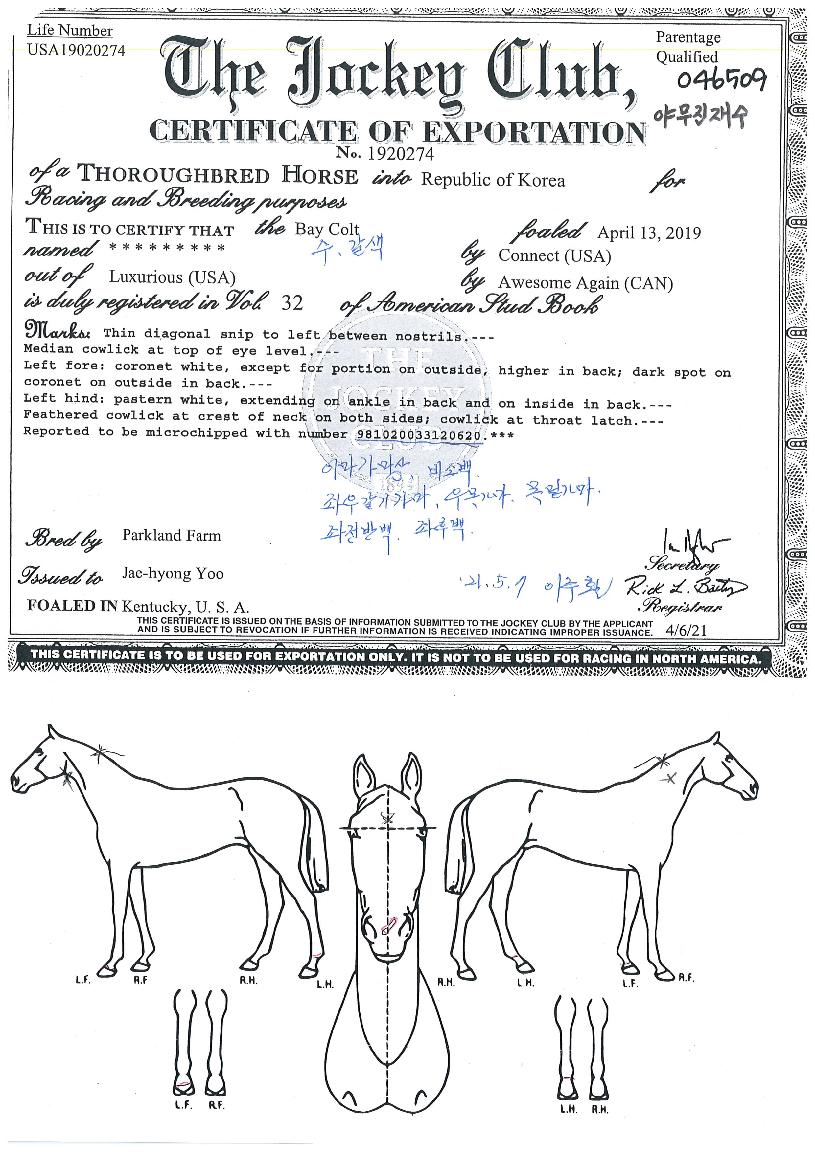 Life Number
USA19020274
The Jockey Club,
Parentage
Qualified
046509
야무진재수
CERTIFICATE OF EXPORTATION
No. 1920274
of a THOROUGHBRED HORSE into Republic of Korea for
Racing and Breeding purposes
THIS IS TO CERTIFY THAT the Bay Colt foaled April 13, 2019
수. 갈색
named * * * * * * * * * by Connect (USA)
out of Luxurious (USA) by Awesome Again (CAN)
is duly registered in Vol. 32 of American Stud Book
Marks: Thin diagonal snip to left between nostrils.---
Median cowlick at top of eye level.---
Left fore: coronet white, except for portion on outside, higher in back; dark spot on
coronet on outside in back.---
Left hind: pastern white, extending on ankle in back and on inside in back.---
Feathered cowlick at crest of neck on both sides; cowlick at throat latch.---
Reported to be microchipped with number 981020033120620.***
THE
JOCKEY
CLUB
1894
비소백.
좌우갈기가마, 우목가마.
좌전반백. 좌후백.
Bred by Parkland Farm
Secretary
Issued to Jae-hyong Yoo
'21. 5. 7
Rick L. Bailey
Registrar
FOALED IN Kentucky, U. S. A.
THIS CERTIFICATE IS ISSUED ON THE BASIS OF INFORMATION SUBMITTED TO THE JOCKEY CLUB BY THE APPLICANT
AND IS SUBJECT TO REVOCATION IF FURTHER INFORMATION IS RECEIVED INDICATING IMPROPER ISSUANCE. 4/6/21
THIS CERTIFICATE IS TO BE USED FOR EXPORTATION ONLY. IT IS NOT TO BE USED FOR RACING IN NORTH AMERICA.
L.F. R.F R.H. L.H. R.H. L H. L.F. R.F.
L.F. R.F. L.H. R.H.